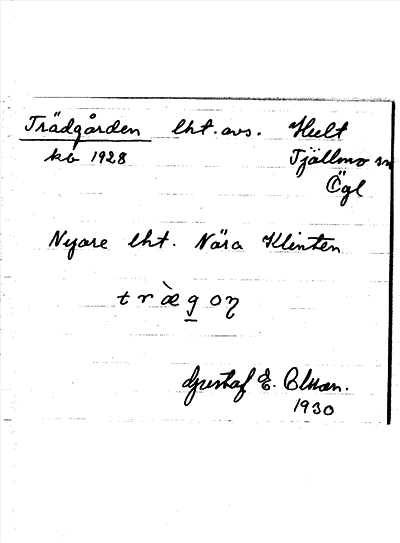 Trädgården lht. avs. Hult
kb 1928 Tjällmo sn
Ögl
Nyare lht. Nära Klinten
træ̀gon
Gustaf E. Olsson.
1930